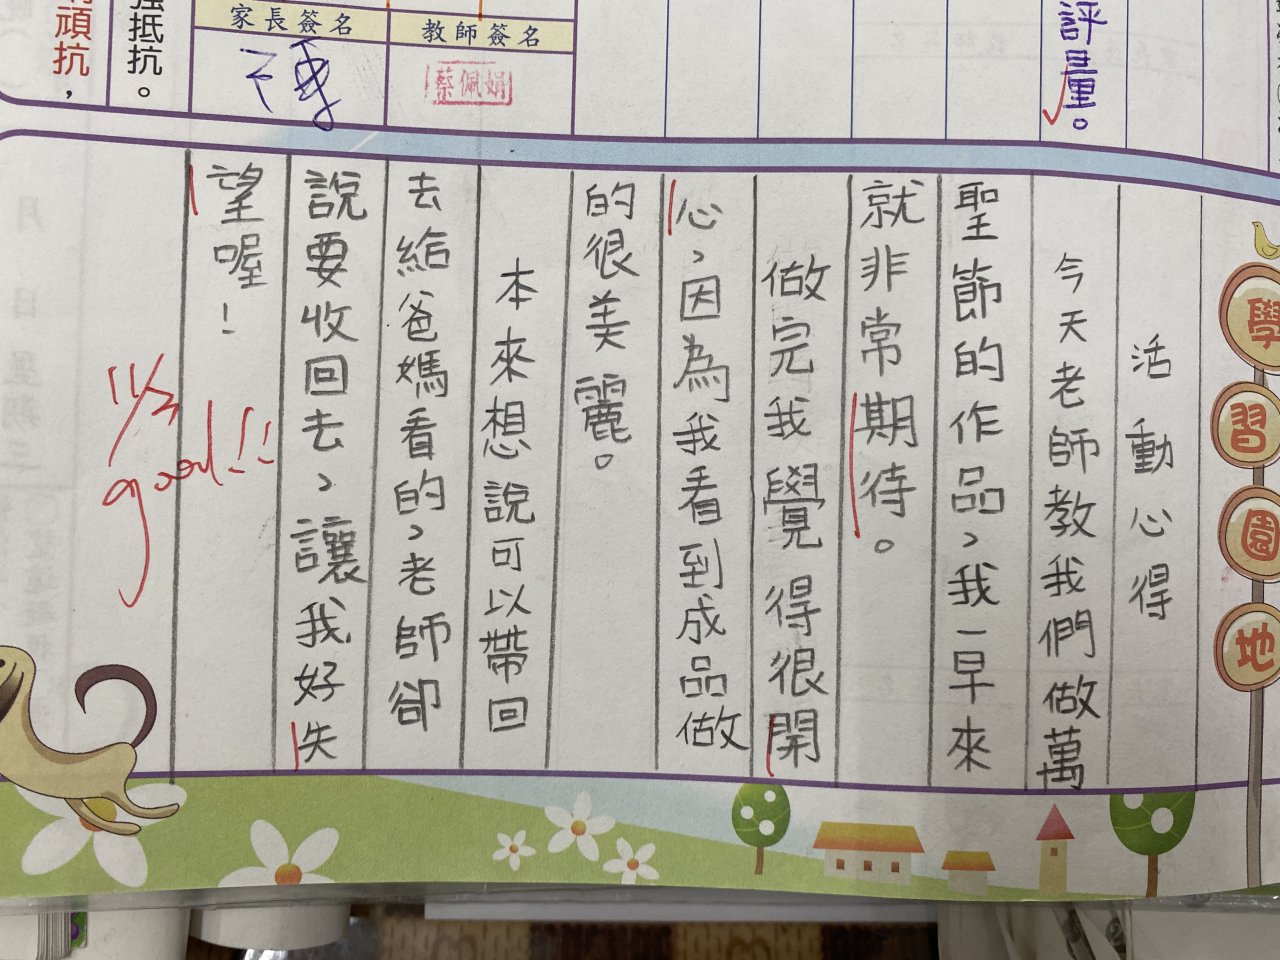 評量。
強抵抗。
頑抗，
家長簽名
教師簽名
蔡佩娟
學習園地
活動心得
今天老師教我們做萬
聖節的作品，我一早來
就非常期待。
做完我覺得很開
心，因為我看到成品做
的很美麗。
本來想說可以帶回
去給爸媽看的，老師卻
說要收回去，讓我好失
望喔！
11/3
good!!